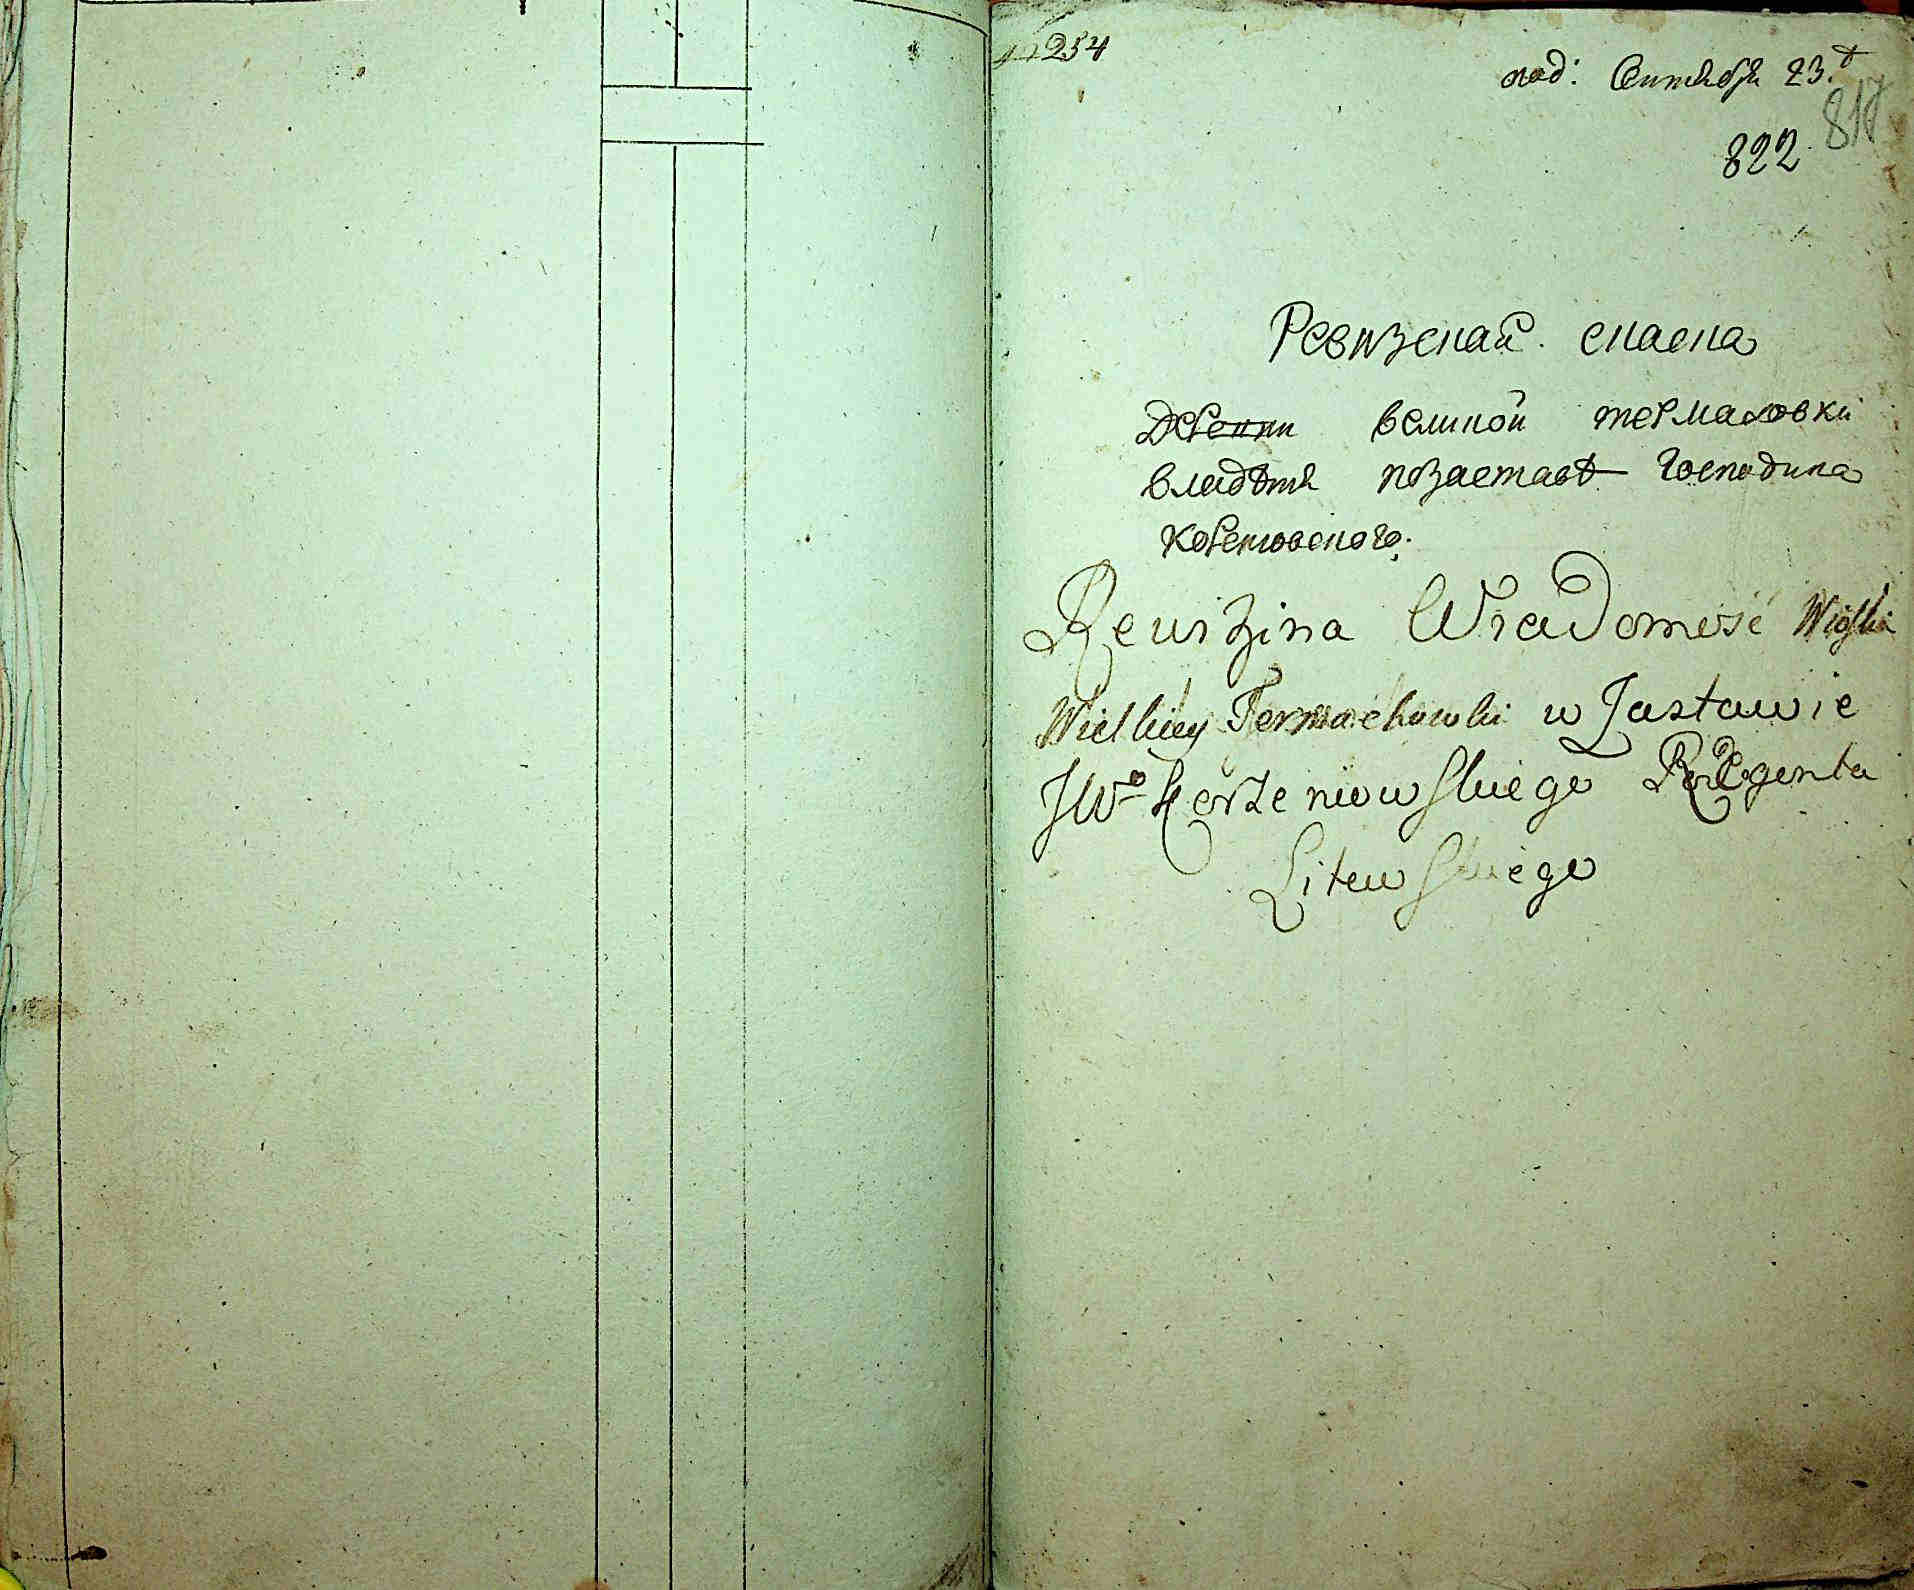 254
под: Сентября 23.
817
822
Ревизская скаска
Деревни великой термаховки
владѣния позаставѣ Господина
корженовского.
Rewizina Wiadomość Wioski
Wielkiey Termachowki w Zastawie
JWo Korzeniowskiego Regenta
Litewskiego